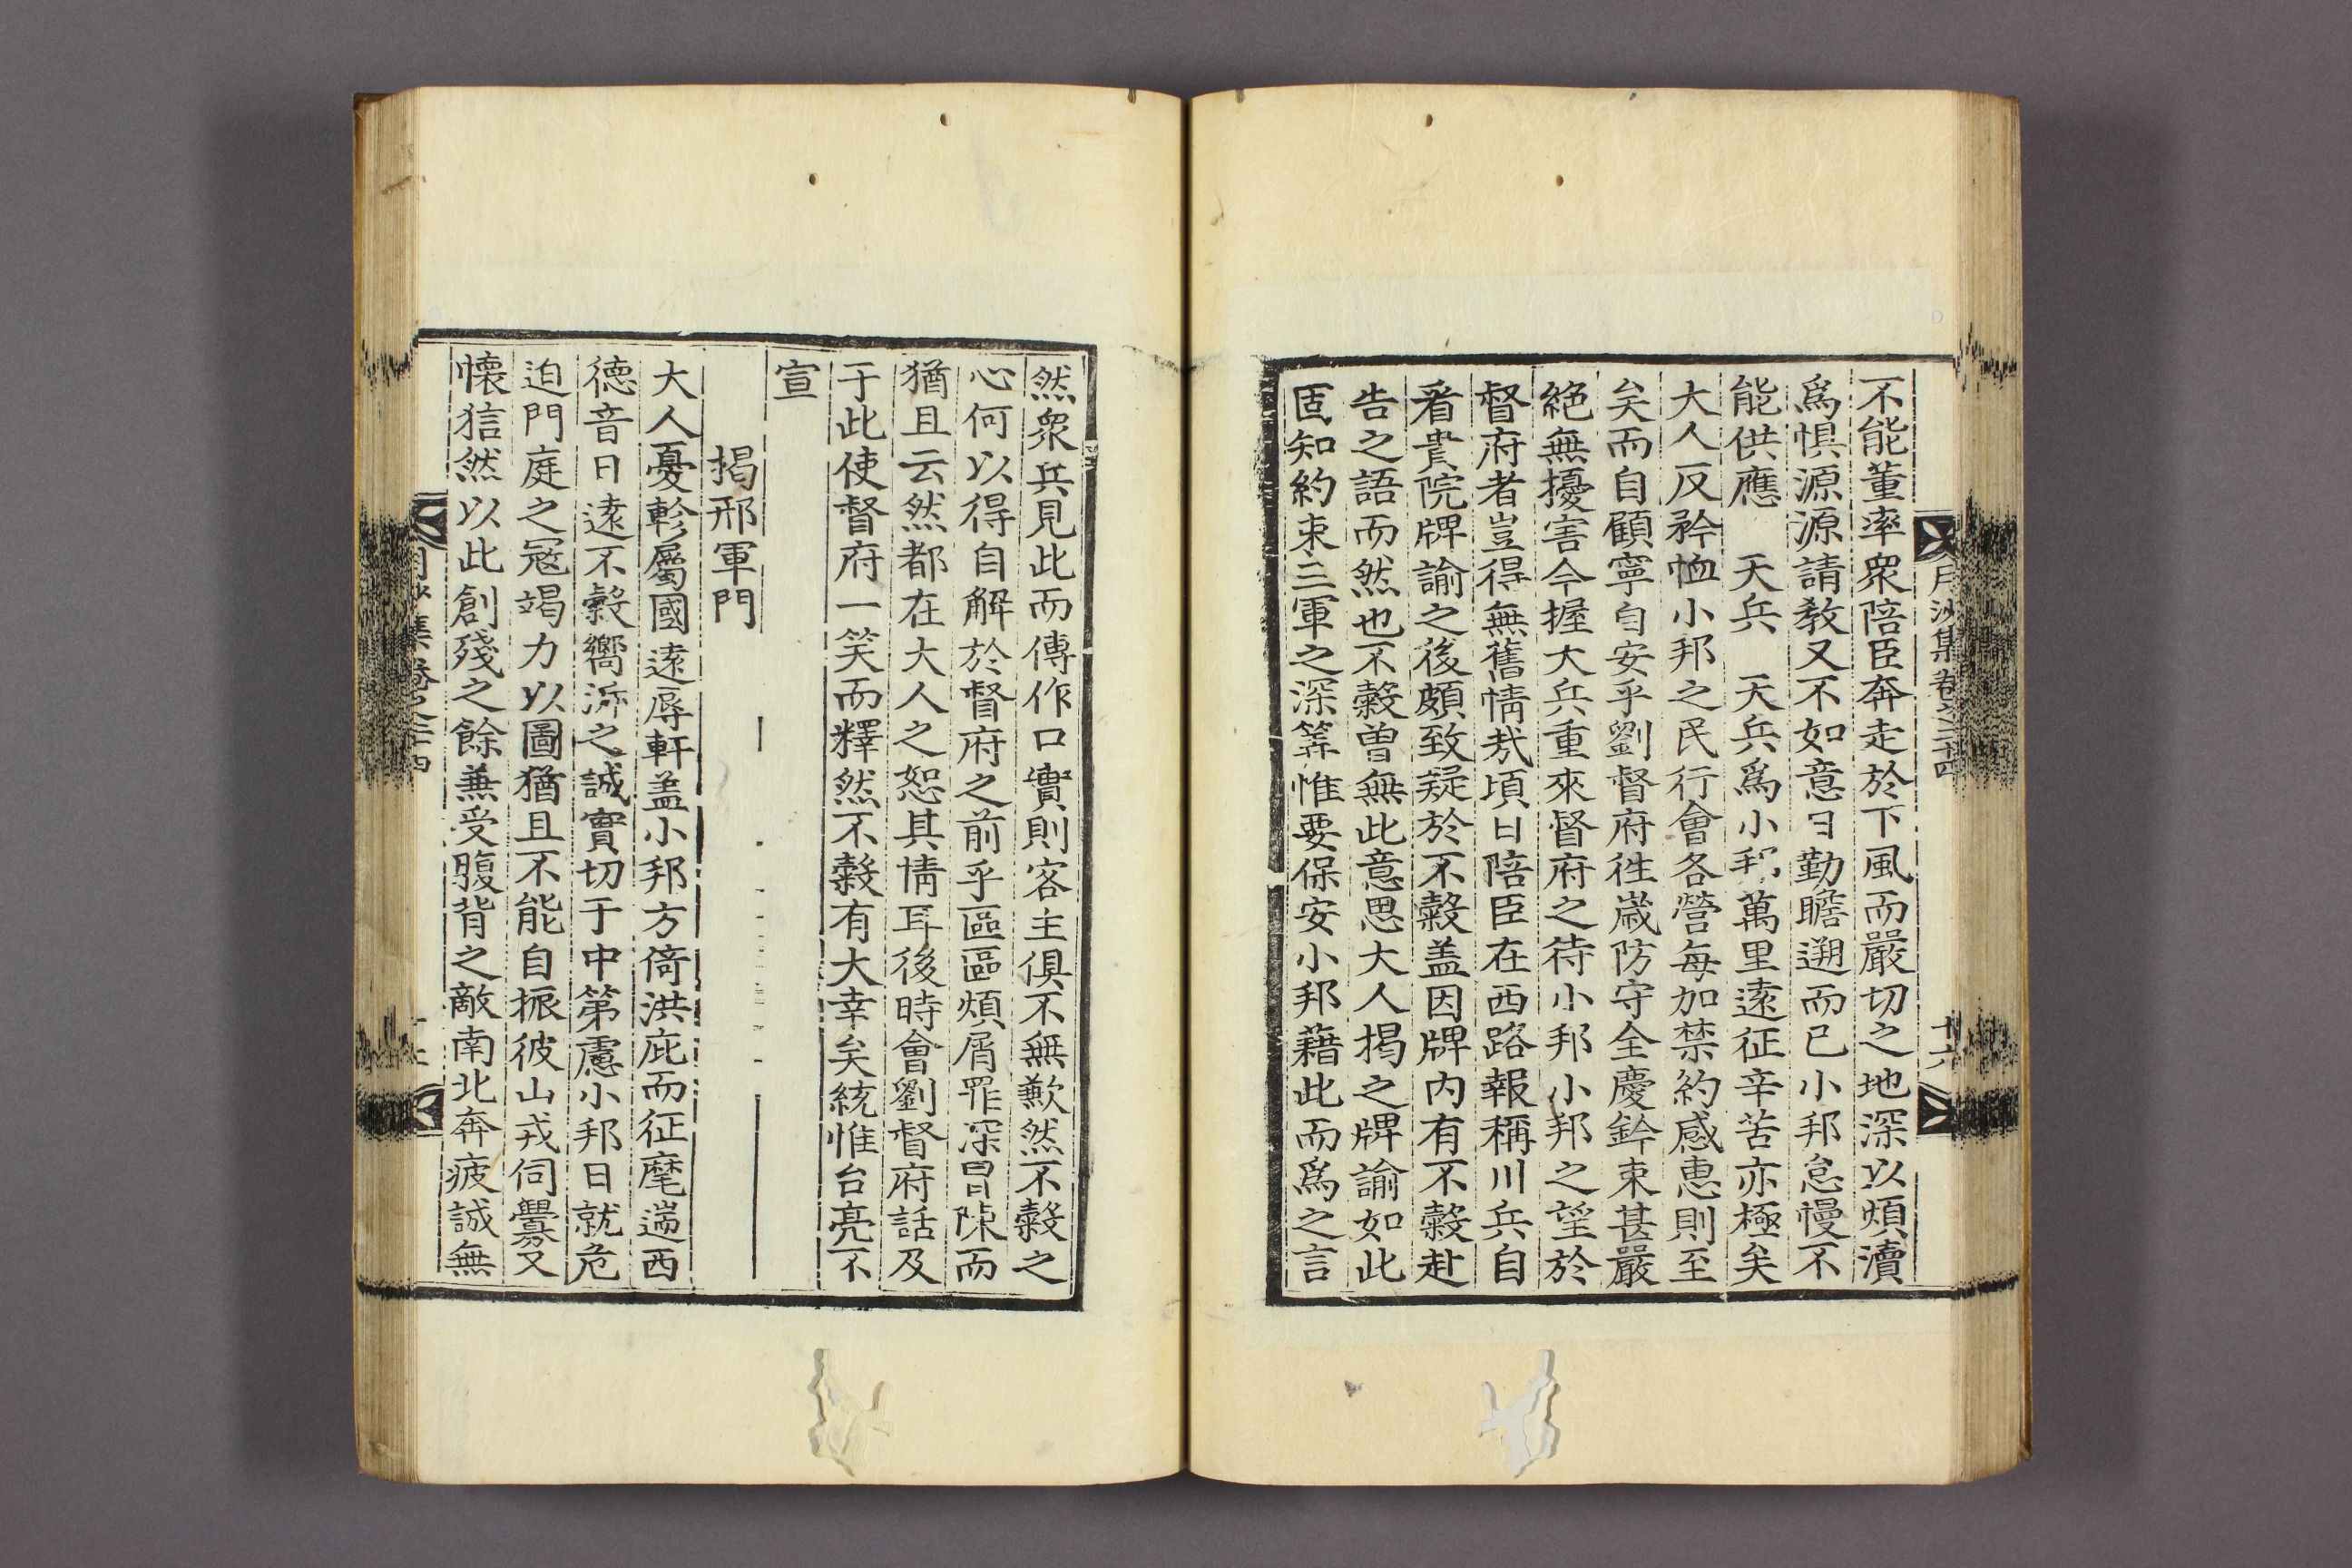 月沙集卷之三十四
十六
不能董率眾陪臣奔走於下風而嚴切之地深以煩瀆
爲惧源源請敎又不如意日勤瞻遡而已小邦怠慢不
能供應 天兵 天兵爲小邦萬里遠征辛苦亦極矣
大人反矜恤小邦之民行會各營每加禁約感惠則至
矣而自顧寧自安乎劉督府徃歲防守全慶鈐束甚嚴
絶無擾害今握大兵重來督府之待小邦小邦之望於
督府者豈得無舊情㢤頃日陪臣在西路報稱川兵自
看貴院牌諭之後頗致疑於不糓盖因牌內有不糓赴
告之語而然也不糓曾無此意思大人揭之牌諭如此
固知約束三軍之深筭惟要保安小邦藉此而爲之言
然眾兵見此而傳作口實則客主俱不無歉然不糓之
心何以得自解於督府之前乎區區煩屑罪深冒陳而
猶且云然都在大人之恕其情耳後時會劉督府話及
于此使督府一笑而釋然不糓有大幸矣統惟台亮不
宣
揭邢軍門
大人憂軫屬國遠辱軒盖小邦方倚洪庇而征麾遄西
德音日遠不糓嚮泝之誠實切于中第慮小邦日就危
迫門庭之冦竭力以圖猶且不能自振彼山戎伺釁又
懷狺然以此創殘之餘兼受腹背之敵南北奔疲誠無
月沙集卷之三十四